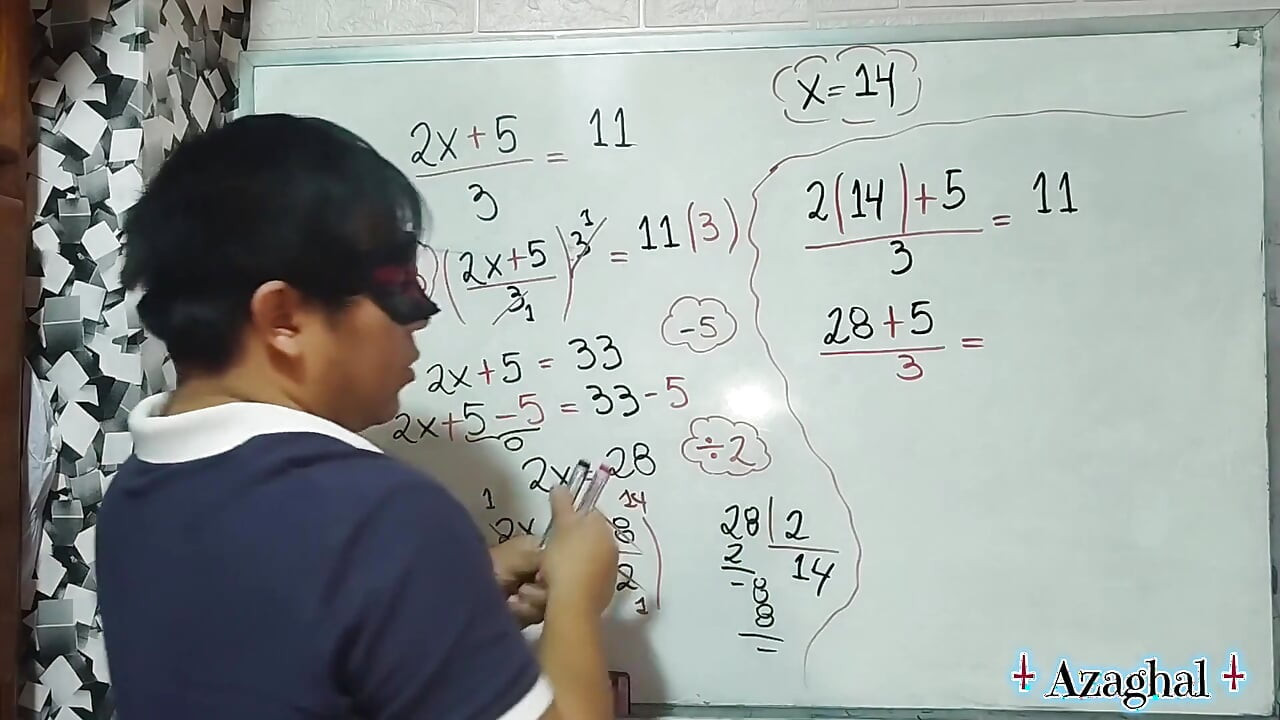 x=14
2x+5 = 11
3
(2x+5)3 1 = 11(3)
3 1
-5
2x+5 = 33
2x+5-5 = 33-5
0
÷2
2x = 28
1 14
2x 8
2
1
28|2
2 14
-8
8
-
2(14)+5 = 11
3
28+5 =
3
Azaghal